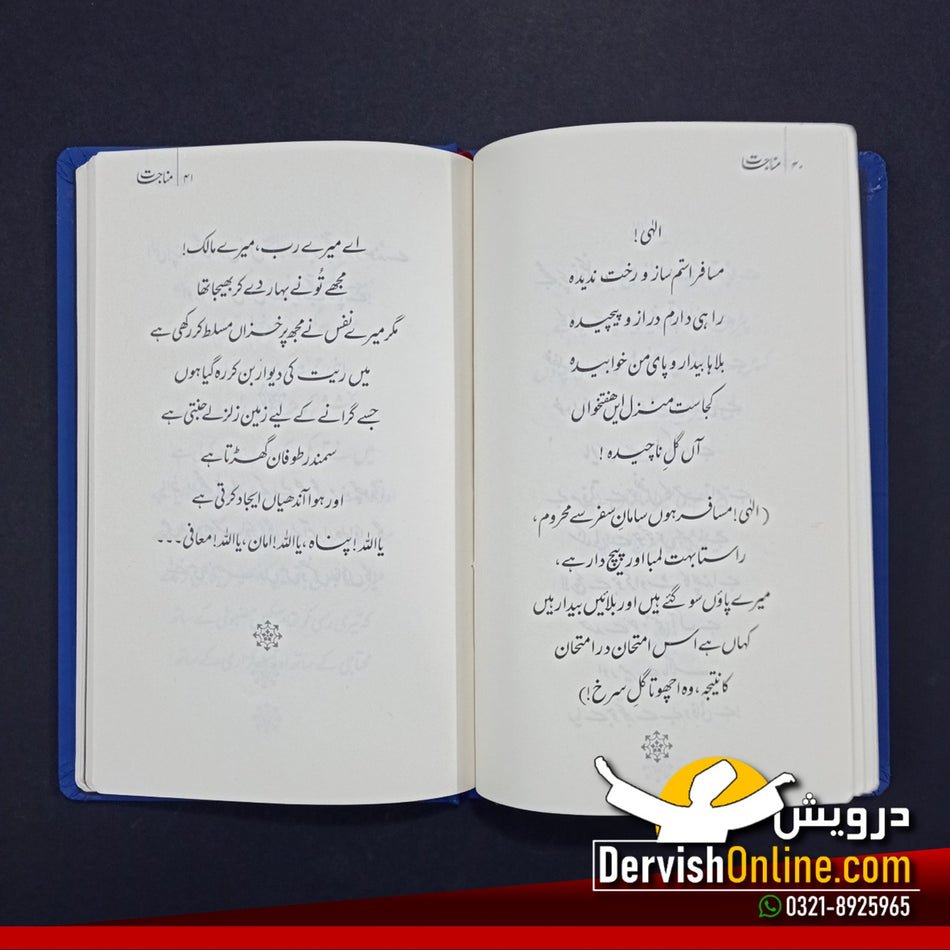 ۴۰ | مناجات
الٰہی!
مسافر استم ساز و رخت ندیدہ
راہی دارم دراز و پیچیدہ
بلاہا بیدار و پای من خوابیدہ
کجاست منزل ایں ھفتخواں
آں گلِ ناچیدہ!
(الٰہی! مسافر ہوں سامان سفر سے محروم،
راستا بہت لمبا اور پیچ دار ہے،
میرے پاؤں سو گئے ہیں اور بلائیں بیدار ہیں
کہاں ہے اس امتحان در امتحان
کا نتیجہ، وہ اچھوتا گلِ سرخ!)
۴۱ | مناجات
اے میرے رب، میرے مالک!
مجھے تُو نے بہار دے کر بھیجا تھا
مگر میرے نفس نے مجھ پر خزاں مسلط کر رکھی ہے
میں ریت کی دیوار بن کر رہ گیا ہوں
جسے گرانے کے لیے زمین زلزلے جنتی ہے
سمندر طوفان گھڑتا ہے
اور ہوا آندھیاں ایجاد کرتی ہے
یااللہ! پناہ، یااللہ! امان، یااللہ! معافی۔۔۔
درویش
DervishOnline.com
0321-8925965